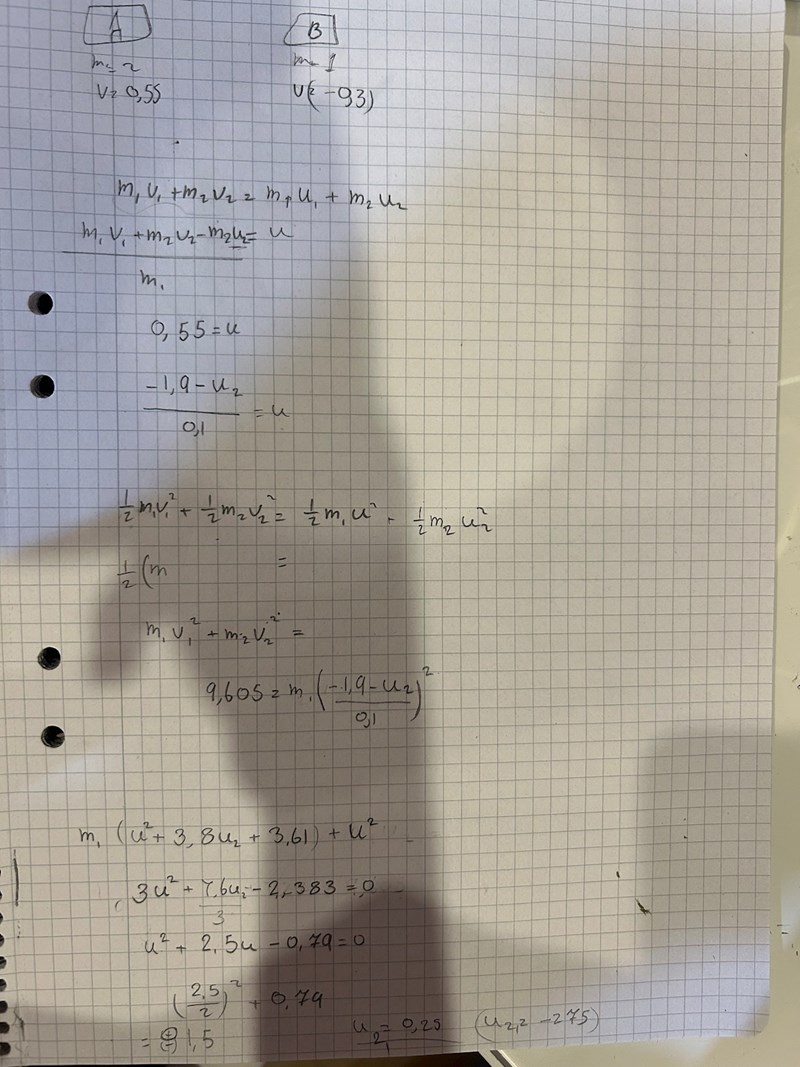 A B
m= 2 m= 1
v= 0,55 v(= -0,3)
m₁v₁ + m₂v₂ = m₁u₁ + m₂u₂
m₁v₁ + m₂v₂ - m₂u₂ = u
m₁
0,55 = u
-1,9 - u₂
= u
0,1
½m₁v₁² + ½m₂v₂² = ½m₁u² - ½m₂u₂²
½(m =
m₁v₁² + m₂v₂² =
9,605 = m₁(-1,9 - u₂ / 0,1)²
m₁ (u² + 3,8u₂ + 3,61) + u²
3u² + 7,6u₂ - 2,383 = 0
3
u² + 2,5u - 0,79 = 0
(2,5/2)² + 0,79
= ± 1,5 u₂,₁ = 0,25 (u₂,₂ -275)